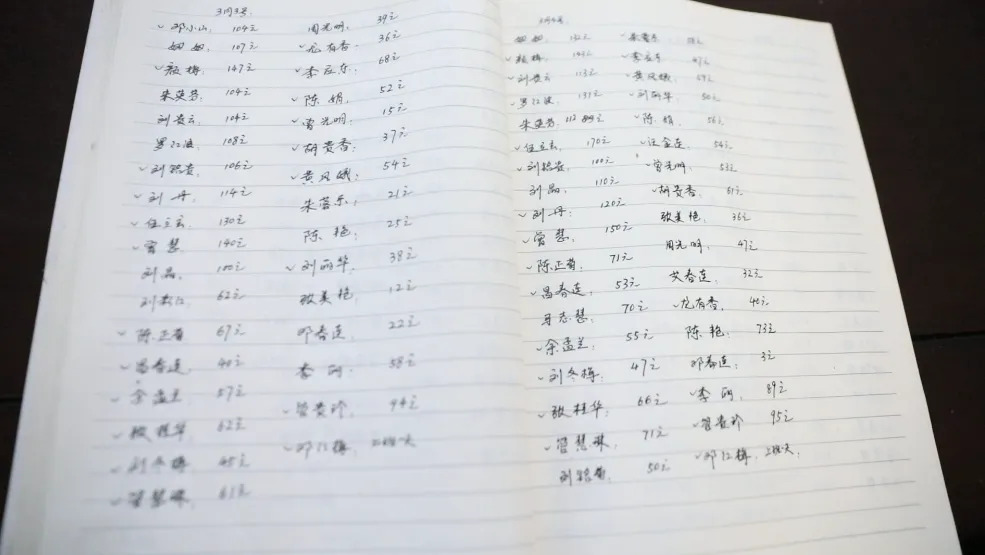 3月3号:
✓邓小山, 104元
妞妞, 107元
✓颜梅: 147元
朱英芬: 104元
刘贵云: 104元
罗江波: 108元
✓刘铭贵: 106元
✓刘丹: 114元
✓任立云: 130元
✓曾慧: 140元
刘晶, 100元
62元
✓陈正首 67元
✓昌春莲, 40元
✓余孟兰, 57元
✓张桂华, 62元
✓刘冬梅, 45元
61元
周光明, 39元
✓龙有香, 36元
✓李应东: 68元
✓陈娟, 52元
✓曾光明, 15元
✓胡贵香: 37元
✓黄风娥: 54元
朱蓉乐: 21元
陈艳: 25元
✓刘丽华, 38元
张美艳, 12元
邓春莲, 22元
李丽: 58元
✓管贵珍, 94元
✓邓江梅,
3月4号:
妞妞,
✓颜梅,
✓刘贵云 113元
✓罗江波, 131元
朱英芬: 112
✓任立云, 170元
✓刘铭贵, 100元
刘晶, 110元
✓刘丹: 120元
✓曾慧, 150元
✓陈正首, 71元
✓昌春莲, 53元
马志慧, 70元
✓余孟兰: 55元
✓刘冬梅, 47元
✓张桂华, 66元
✓管慧琳, 71元
50元
✓李应东
✓黄风娥, 69元
✓刘丽华 50元
✓陈娟, 56元
✓汪金莲, 54元
✓曾光明, 53元
胡贵香, 61元
张美艳, 36元
周光明, 47元
艾春莲, 32元
✓龙有香, 40元
陈艳: 73元
邓春莲: 3元
✓李丽, 89元
✓管贵珍 95元
✓邓江梅,